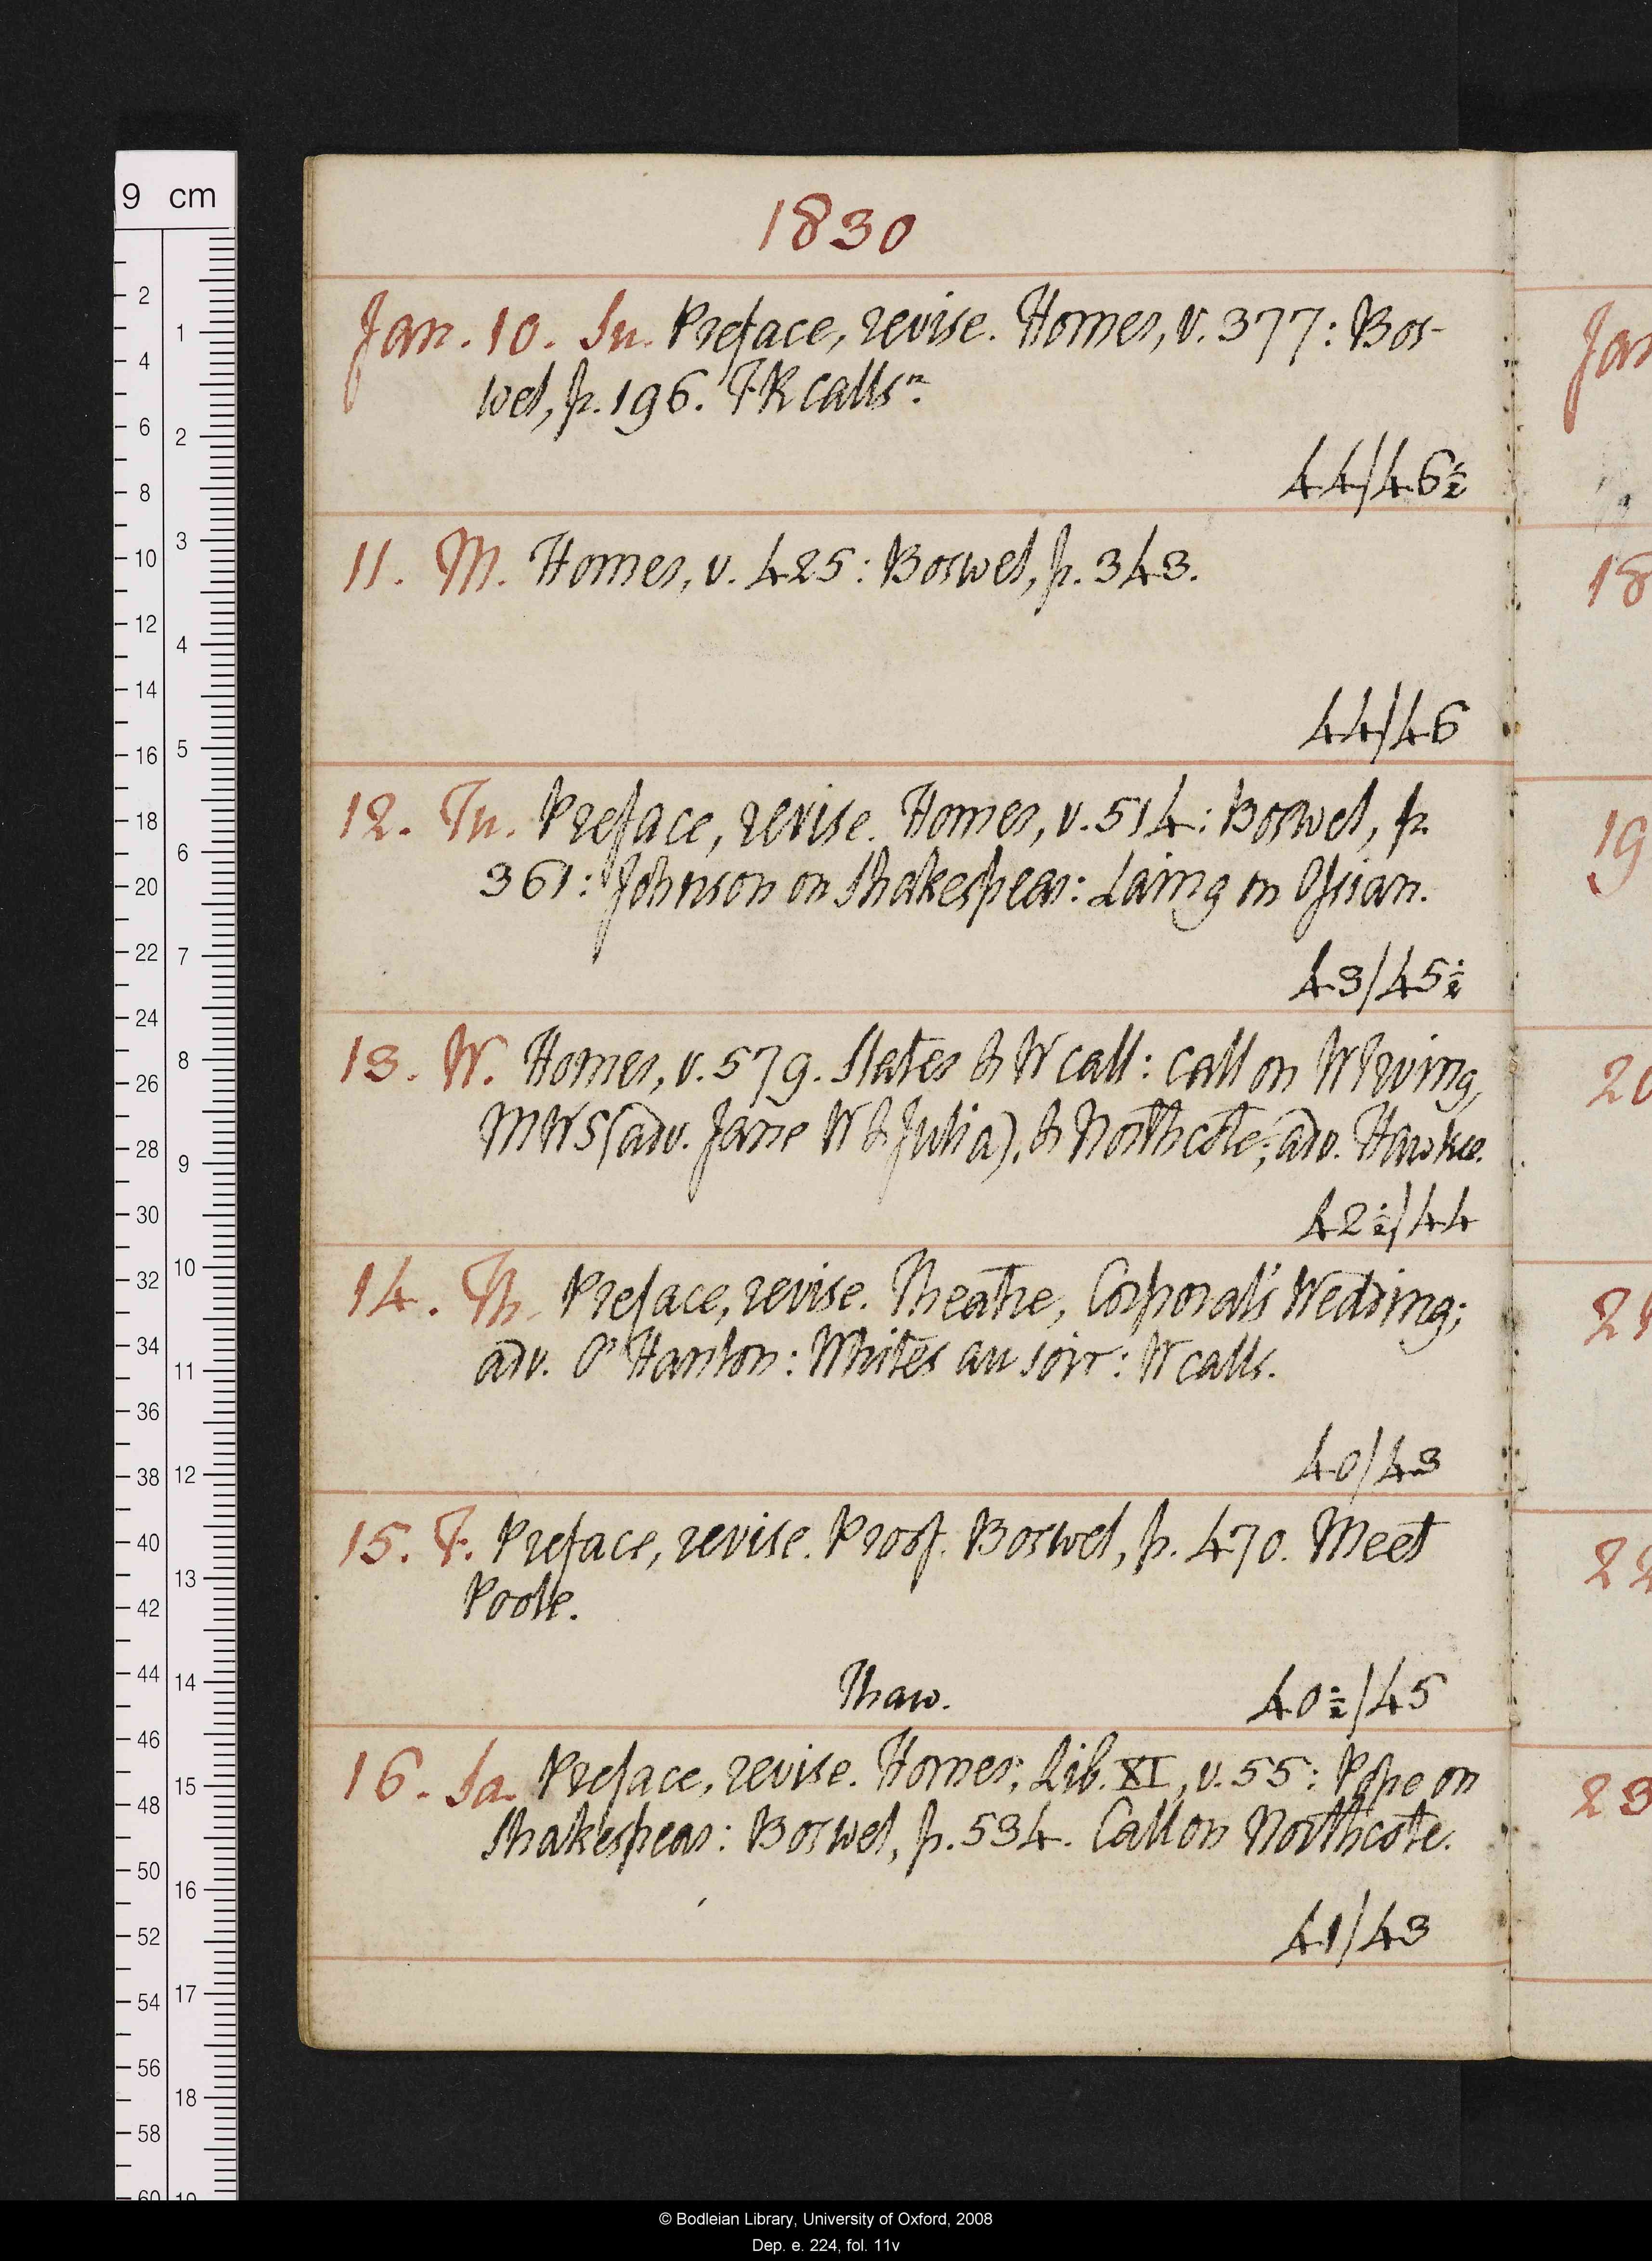 1830
Jan. 10. Su. Preface, revise. Homer, v. 377: Bos-
wel, p. 196. FK calls n.
44/46½
11. M. Homer, v. 425: Boswel, p. 343.
44/46
12. Tu. Preface, revise. Homer, v. 514: Boswel, p.
361: Johnson on Shakespear: Laing on Ossian.
43/45½
13. W. Homer, v. 579. Slater & W call: call on W Irving,
MWS (adv. Jane W & Julia), & Northcote; adv. Hawke.
42½/44
14. Th. Preface, revise. Theatre, Corporal's Wedding;
adv. O'Hanlon: Whites au soir: W calls.
40/43
15. F. Preface, revise. Proof. Boswel, p. 470. Meet
Poole.
Thaw. 40½/45
16. Sa. Preface, revise. Homer; Lib. XI, v. 55: Pope on
Shakespear: Boswel, p. 534. Call on Northcote.
41/43
Jan
18
19
20
21
22
23
9 cm
© Bodleian Library, University of Oxford, 2008
Dep. e. 224, fol. 11v